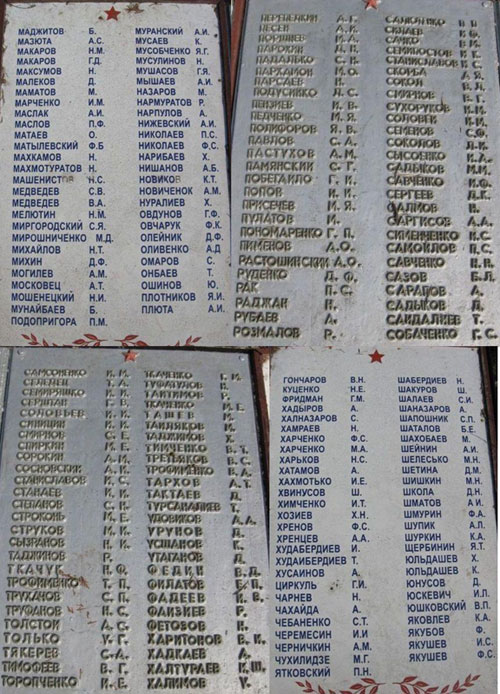 МАДЖИТОВ Б.
МАЗЮТА А.С.
МАКАРОВ Н.М.
МАКАРОВ Г.Д.
МАКСУМОВ Н.
МАЛЕКОВ Д.
МАМАТОВ М.
МАРЧЕНКО И.М.
МАСЛАК А.И.
МАСЛОВ П.Ф.
МАТАЕВ О.
МАТЫЛЕВСКИЙ Ф.Б
МАХКАМОВ Н.
МАХМОТУРАТОВ Н.
МАШЕНИСТОВ Н.С.
МЕДВЕДЕВ С.В.
МЕДВЕДЕВ В.А.
МЕЛЮТИН Н.М.
МИРГОРОДСКИЙ С.Я.
МИРОШНИЧЕНКО М.Д.
МИХАЙЛОВ Н.Т.
МИХИН Д.Ф.
МОГИЛЕВ А.М.
МОСКОВЕЦ А.Т.
МОШЕНЕЦКИЙ Н.И.
МУНАЙБАЕВ Б.
ПОДОПРИГОРА П.М.
МУРАНСКИЙ А.И.
МУСАЕВ К.
МУСОБЧЕНКО Я.Г.
МУСУЛИНОВ Н.
МУШАСОВ Г.Я.
МЫШАЕВ А.И.
НАЗАРОВ М.
НАРМУРАТОВ Р.
НАРПУЛОВ А.
НИЖЕВСКИЙ А.И.
НИКОЛАЕВ П.С.
НИКОЛАЕВ Ф.С.
НАРИБАЕВ Х.
НИШАНОВ А.Б.
НОВИКОВ К.Т.
НОВИЧЕНОК А.М.
НУРАЛИЕВ Х.
ОВДУНОВ Г.Ф.
ОВЧАРУК Ф.К.
ОЛЕЙНИК Д.Ф.
ОЛИВЕНКО А.Д
ОМАРОВ С.
ОНБАЕВ Т.
ОШИНОВ Ю.
ПЛОТНИКОВ Я.И.
ПЛЮТА А.И.
ПЕСЕН А.И.
ПАРОХИН
ПАДАЛЬКО С.И.
ПАРХАМОМ М.О.
ПАРСАЕВ Н.
ПОДУСИКО Л.С.
ПЕНЗИЕВ И.В.
ПЕДЧЕНКО М.Я.
ПОЛИФОРОВ Я.В.
ПАВЛОВ С.А.
ПАСТУХОВ А.М.
ПАМЯНСКИЙ С.Г.
ПОБЕГАЙЛО Г.И.
ПОПОВ И.И.
ПРИСЕЧЕМ М.Я.
ПУЛАТОВ М.
ПОНОМАРЕНКО Г.П.
ПИМЕНОВ А.О.
РАСТОШИНСКИЙ А.О.
РУДЕНКО Д.Ф.
РАК П.С.
РАДЖАН Н.
РУБАЕВ А.
РОЗМАЛОВ Р.
СКЛАЕВ И.Ф.
СОКОЛ А.Л.
СУХОРУКОВ И.М.
СОЛОВЕЙ И.И.
СЕМЕНОВ С.Ф.
СОКОЛОВ Л.И.
СЫСОЕНКО И.А.
САДЫКОВ М.М.
САВЧЕНКО И.Ф.
СЕРГЕЕВ Л.Г.
САРГИСОВ А.А.
СИМЕНЧЕНКО И.С.
САМОХЛОП П.С.
САВЧЕНКО И.В.
САЗОВ Б.Л.
САРАПОВ А.
САДЫКОВ Д.
САИДАЛИЕВ Т.
СОБАЧЕНКО Г.С.
САМСОНЕНКО И.М.
СЕЛЕНЕЦ Т.А.
СОЛОВЬЕВ И.И.
СИНИЦИН И.И.
СМИРНОВ С.Е.
СПИРКИН М.Е.
СОРОКИН А.М.
СОСНОВСКИЙ А.И.
СТАНИСЛАВОВ И.С.
СТАНАЕВ И.И.
СТЕПАНОВ С.Н.
СТРОКОВ М.Е.
СТРУКОВ М.И.
СЫЗРАНОВ Н.И.
ТАДЖИНОВ Р.
ТКАЧУК Н.Ф.
ТРОФИМЕНКО Т.П.
ТРУХАНОВ С.П.
ТРУФАНОВ Н.С.
ТОЛСТОЙ А.С.
ТОЛЬКО У.Г.
ТЯКЕРЕВ С.А.
ТИМОФЕЕВ В.Г.
ТОРОПЧЕНКО И.Е.
ТКАЧЕНКО Г.И.
ТУФАТУЛОВ И.
ТАИТИМОВ Р.
ТКАЧЕНКО М.Е.
ТАШЕВ М.
ТАИЛЯКОВ М.
ТАДЖИМОВ Х.
ТИМЧЕНКО В.Т.
ТРЕТЬЯКОВ В.С.
ТРОФИМЕНКО Т.А.
ТАРХОВ А.Т.
ТАКТАЕВ Д.
ТУРСАНАЛИЕВ Т.
УДОВИКОВ А.А.
УРУНОВ Д.
УСПАНОВ К.
УТАГАНОВ Д.
ФЕДИН В.Д.
ФИЛАТОВ Б.П.
ФАДЕЕВ В.В.
ФАИЗИЕВ Р.
ФЕТОЗОВ Н.
ХАРИТОНОВ В.К.
ХАДКАЕВ А.
ХАЛТУРАЕВ К.Ш.
ХАЛИМОВ У.
ГОНЧАРОВ В.Н.
КУЦЕНКО Н.Е.
ФРИДМАН Г.М.
ХАДЫРОВ А.
ХАЛНАЗАРОВ С.
ХАМРАЕВ Н.
ХАРЧЕНКО Ф.С.
ХАРЧЕНКО М.А.
ХАРЬКОВ Н.С.
ХАТАМОВ А.
ХАХМОТЬКО И.Е.
ХВИНУСОВ Ш.
ХИМЧЕНКО И.Т.
ХОЗИЕВ Х.Н.
ХРЕНОВ Ф.С.
ХРЕНЦЕВ А.А.
ХУДАБЕРДИЕВ И.
ХУДАИБЕРДИЕВ Т.
ХУСАИНОВ А.
ЦИРКУЛЬ Г.И.
ЧАРНЕВ Н.
ЧАХАЙДА А.
ЧЕБАНЕНКО С.Т.
ЧЕРЕМЕСИН И.И
ЧЕРНИЧКИН А.М.
ЧУХИЛИДЗЕ М.Г.
ЯТКОВСКИЙ П.Н.
ШАБЕРДИЕВ Н.
ШАКУРОВ Ш.
ШАЛАЕВ С.И.
ШАНАЗАРОВ А.
ШАПОШНИК С.П.
ШАТАЛОВ Б.Е.
ШАХОБАЕВ М.
ШЕЙНИН А.И.
ШЕЛЕСЬКО М.Н.
ШЕТИНА Д.М.
ШИШКИН М.Н.
ШКОЛА Д.Н.
ШМАТОВ А.И.
ШМУРИН Ф.А.
ШУПИК А.Л.
ШУРКИН К.А.
ЩЕРБИНИН Я.Т.
ЮЛЬДАШЕВ Х.
ЮЛЬДАШЕВ К.
ЮНУСОВ Д.
ЮСКЕВИЧ И.П.
ЮШКОВСКИЙ В.П.
ЯКОВЛЕВ К.А.
ЯКУБОВ Ф.
ЯКУШЕВ И.С.
ЯКУШЕВ Ф.С.